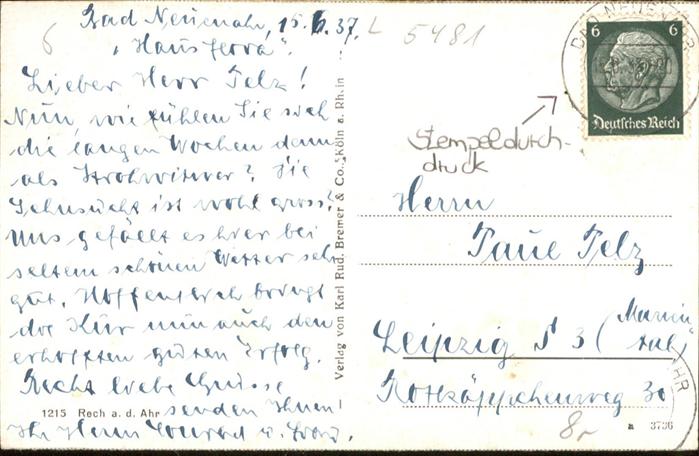 Bad Neuenahr, 15.6.37.
„Haus
Lieber Herr Pelz!
Nun, wie fühlen Sie sich
die langen Wochen denn
als Strohwitwer? Die
Sehnsucht ist wohl gross?
Uns gefällt es hier bei
seltem schönen Wetter sehr
gut. Hoffentlich bringt
die Kur nun auch den
erhofften guten Erfolg.
Recht liebe Grüsse
senden Ihnen!
Ihr
1215 Rech a. d. Ahr
Verlag von Karl Rud. Bremer & Co., Köln a. Rh.
6
L 5481
BAD NEUENAHR
6 6
Deutsches Reich
Stempeldurch-
druck
Herrn
Paul Pelz
Leipzig S 3 (Marien-
Rotkäppchenweg 30
AHR
8,-
a 3736